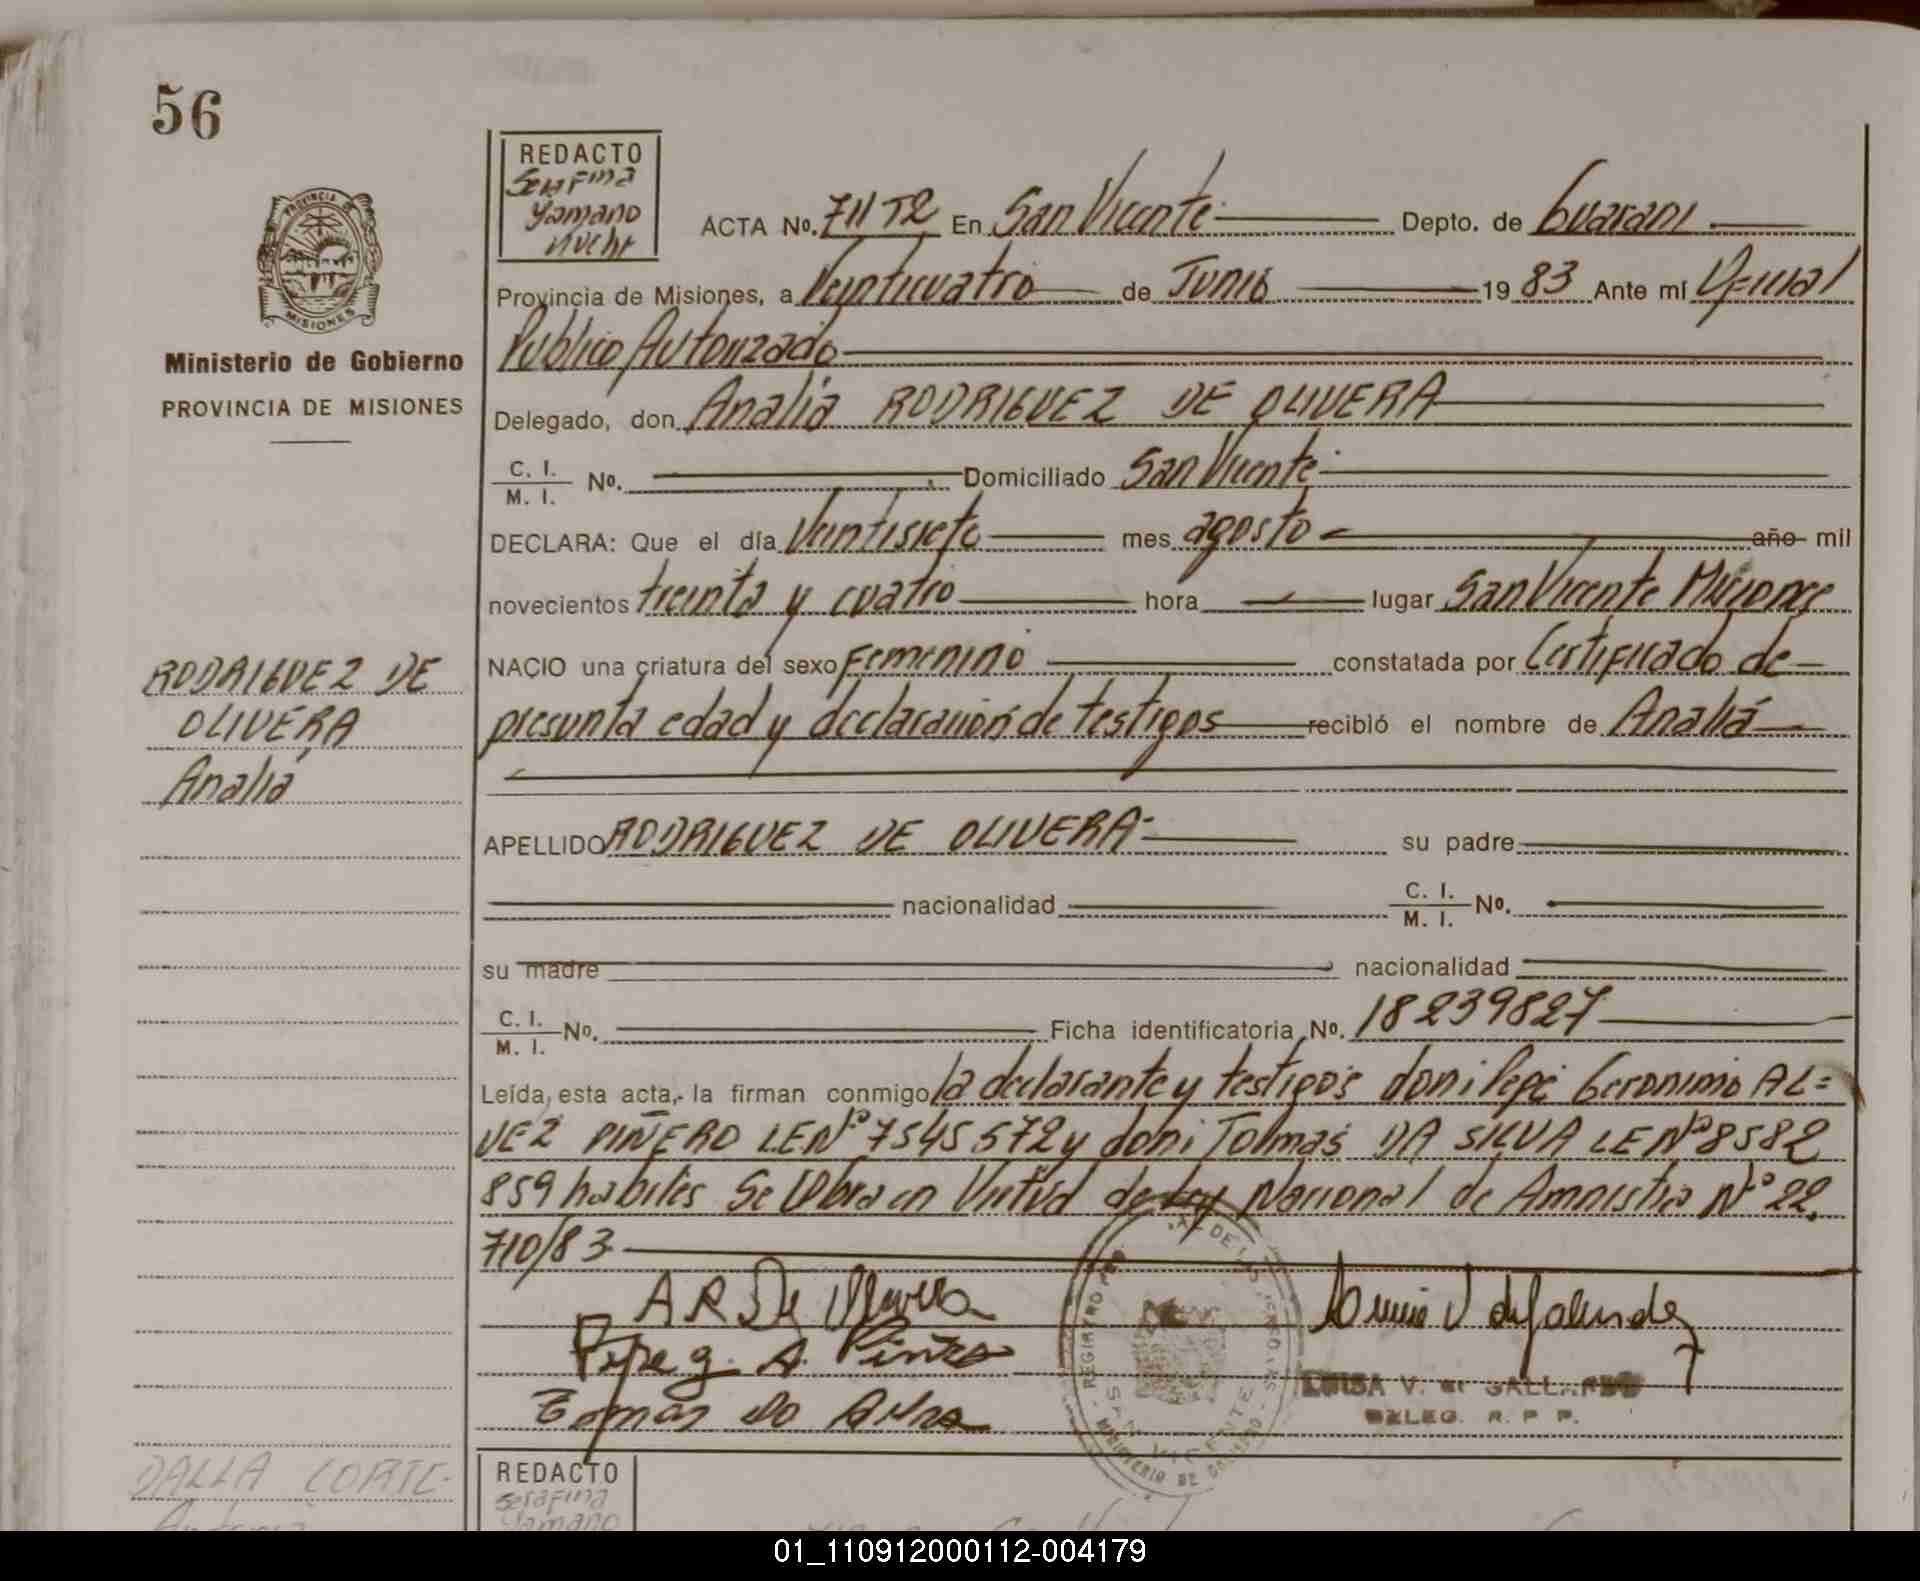 56
REDACTO
Serafina
Yamano
PROVINCIA DE
MISIONES
ACTA No. 711 T2 En San Vicente Depto. de Guarani
Provincia de Misiones, a Veinticuatro de Junio 19 83 Ante mí Oficial
Publico Autorizado
Ministerio de Gobierno
PROVINCIA DE MISIONES
Delegado, don Analia RODRIGUEZ DE OLIVERA
C. I.
M. I. No. Domiciliado San Vicente
DECLARA: Que el día Veintisiete mes agosto año mil
novecientos treinta y cuatro hora lugar San Vicente Misiones
NACIO una criatura del sexo Femenino constatada por Certificado de
presunta edad y declaración de testigos recibió el nombre de Analiá
RODRIGUEZ DE
OLIVERA
Analia
APELLIDO RODRIGUEZ DE OLIVERA su padre
nacionalidad C. I.
M. I. No.
su madre nacionalidad
C. I.
M. I. No. Ficha identificatoria No. 18239827
Leída, esta acta, la firman conmigo la declarante y testigos don: Pepe Geronimo AL=
VEZ PIÑERO LE Nº 7545572 y don: Tolmas DA SILVA LE Nº 8582
859 habiles Se labra en Virtud de Ley Nacional de Amnistia Nº 22.
710/83
A R De Olivera
Pepe g. A. Piñero
LUISA V. de GALLARDO
DELEG. R. P. P.
REGISTRO PROV. DE LAS PERSONAS
SAN VICENTE
MINISTERIO DE GOBIERNO
DALLA CORTE
Antonia
REDACTO
Serafina
Yamano
01_110912000112-004179